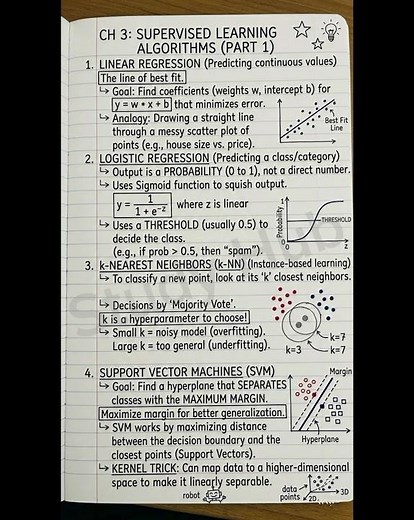 CH 3: SUPERVISED LEARNING
ALGORITHMS (PART 1)
1. LINEAR REGRESSION (Predicting continuous values)
The line of best fit.
↳ Goal: Find coefficients (weights w, intercept b) for
y = w • x + b that minimizes error.
↳ Analogy: Drawing a straight line
through a messy scatter plot of
points (e.g., house size vs. price).
Best Fit
Line
2. LOGISTIC REGRESSION (Predicting a class/category)
↳ Output is a PROBABILITY (0 to 1), not a direct number.
↳ Uses Sigmoid function to squish output.
y = 1 / 1 + e^-z where z is linear
↳ Uses a THRESHOLD (usually 0.5) to
decide the class.
(e.g., if prob > 0.5, then "spam").
Probability
1
THRESHOLD
0
z
3. k-NEAREST NEIGHBORS (k-NN) (Instance-based learning)
↳ To classify a new point, look at its 'k' closest neighbors.
↳ Decisions by 'Majority Vote'.
k is a hyperparameter to choose!
↳ Small k = noisy model (overfitting).
Large k = too general (underfitting).
k=7
k=3
k=7
4. SUPPORT VECTOR MACHINES (SVM)
↳ Goal: Find a hyperplane that SEPARATES
classes with the MAXIMUM MARGIN.
Maximize margin for better generalization.
↳ SVM works by maximizing distance
between the decision boundary and the
closest points (Support Vectors).
Margin
Hyperplane
↳ KERNEL TRICK: Can map data to a higher-dimensional
space to make it linearly separable.
robot
data
points
2D
3D